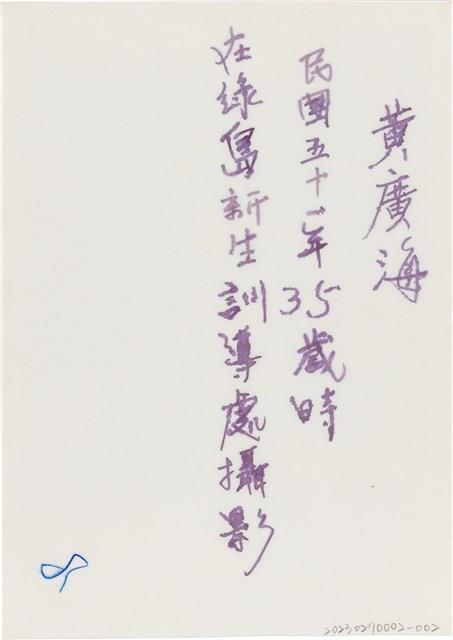 黃廣海
民國五十一年35歲時
在綠島新生訓導處攝影
20230270002-002